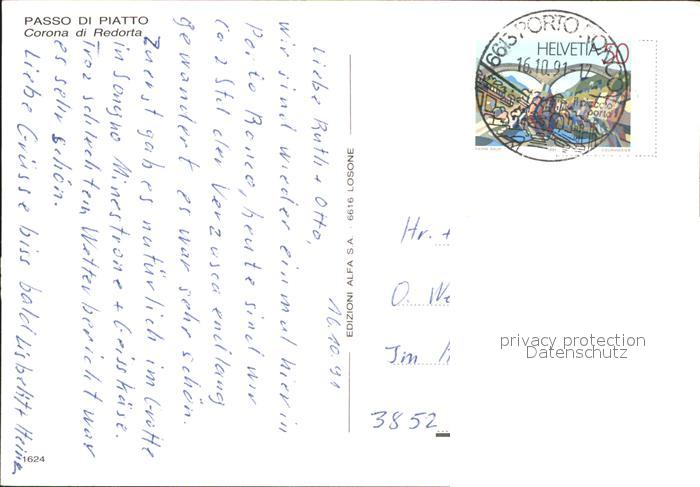 PASSO DI PIATTO
Corona di Redorta
16.10.91
Liebe Ruth + Otto,
Wir sind wieder einmal hier in
Porto Ronco, heute sind wir
ca 2 Std der Verzasca entlang
gewandert es war sehr schön.
Zuerst gab es natürlich im Grotto
in Songno Minestrone + Geisskäse.
Troz schlechtem Wetterbericht war
es sehr schön.
Liebe Grüsse biss bald Lisbeth + Heinz
1624
EDIZIONI ALFA S.A. - 6616 LOSONE
6613 PORTO RONCO
16.10.91-12
HELVETIA 50
Hr. +
O. We
Im
3852
privacy protection
Datenschutz